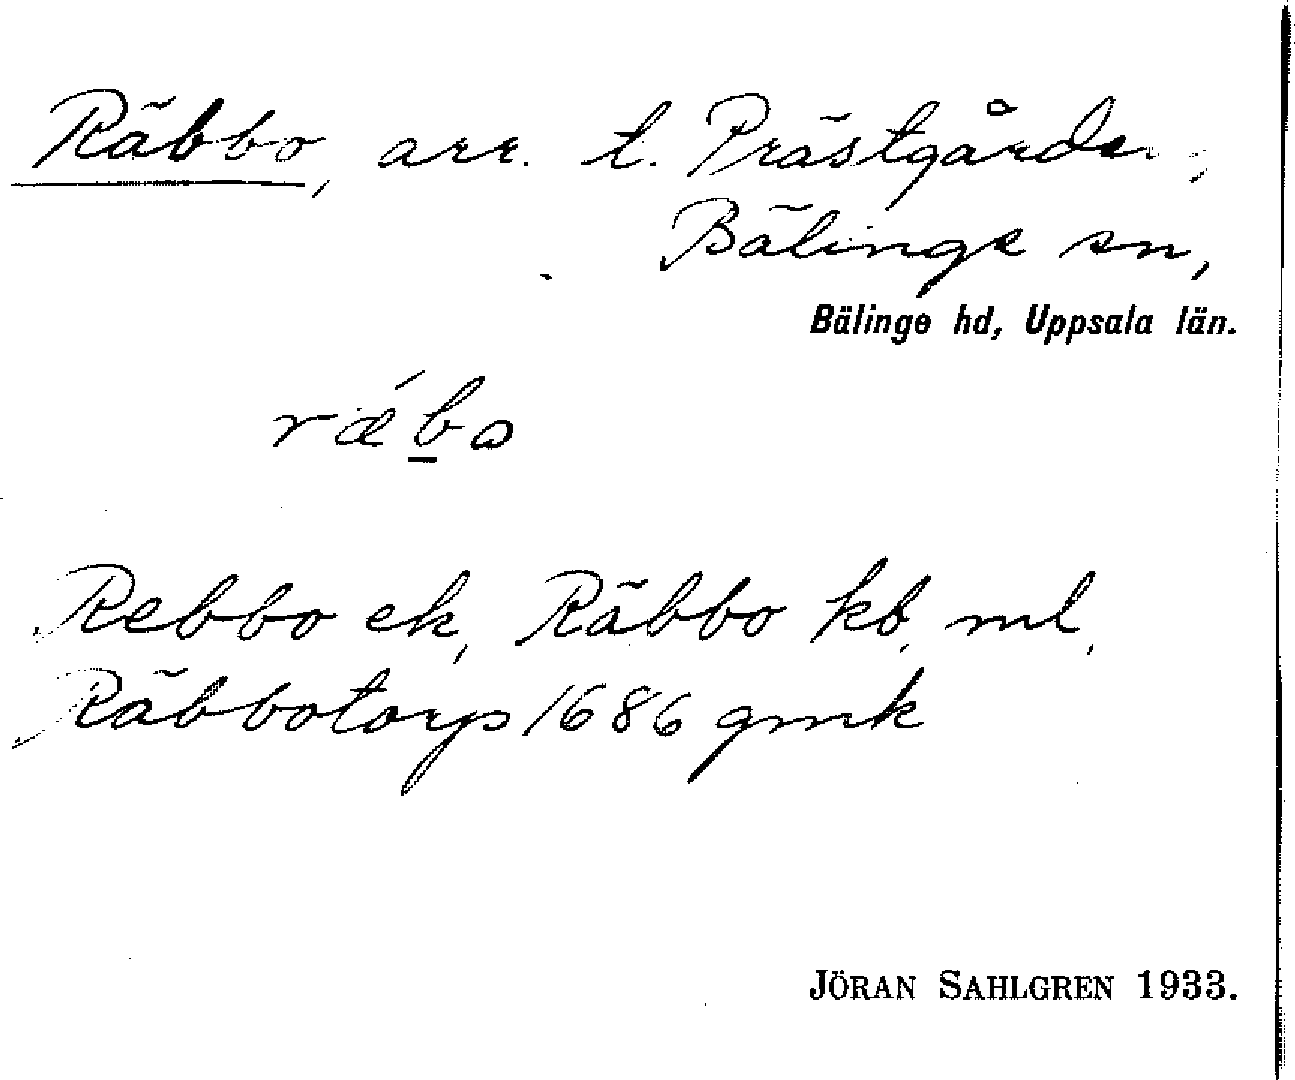 Räbbo, arr. t. Prästgården,
Bälinge sn,
Bälinge hd, Uppsala län.
rǽb̲o
Rebbo ek, Räbbo kb, ml,
Räbbotorp 1686 gmk
JÖRAN SAHLGREN 1933.